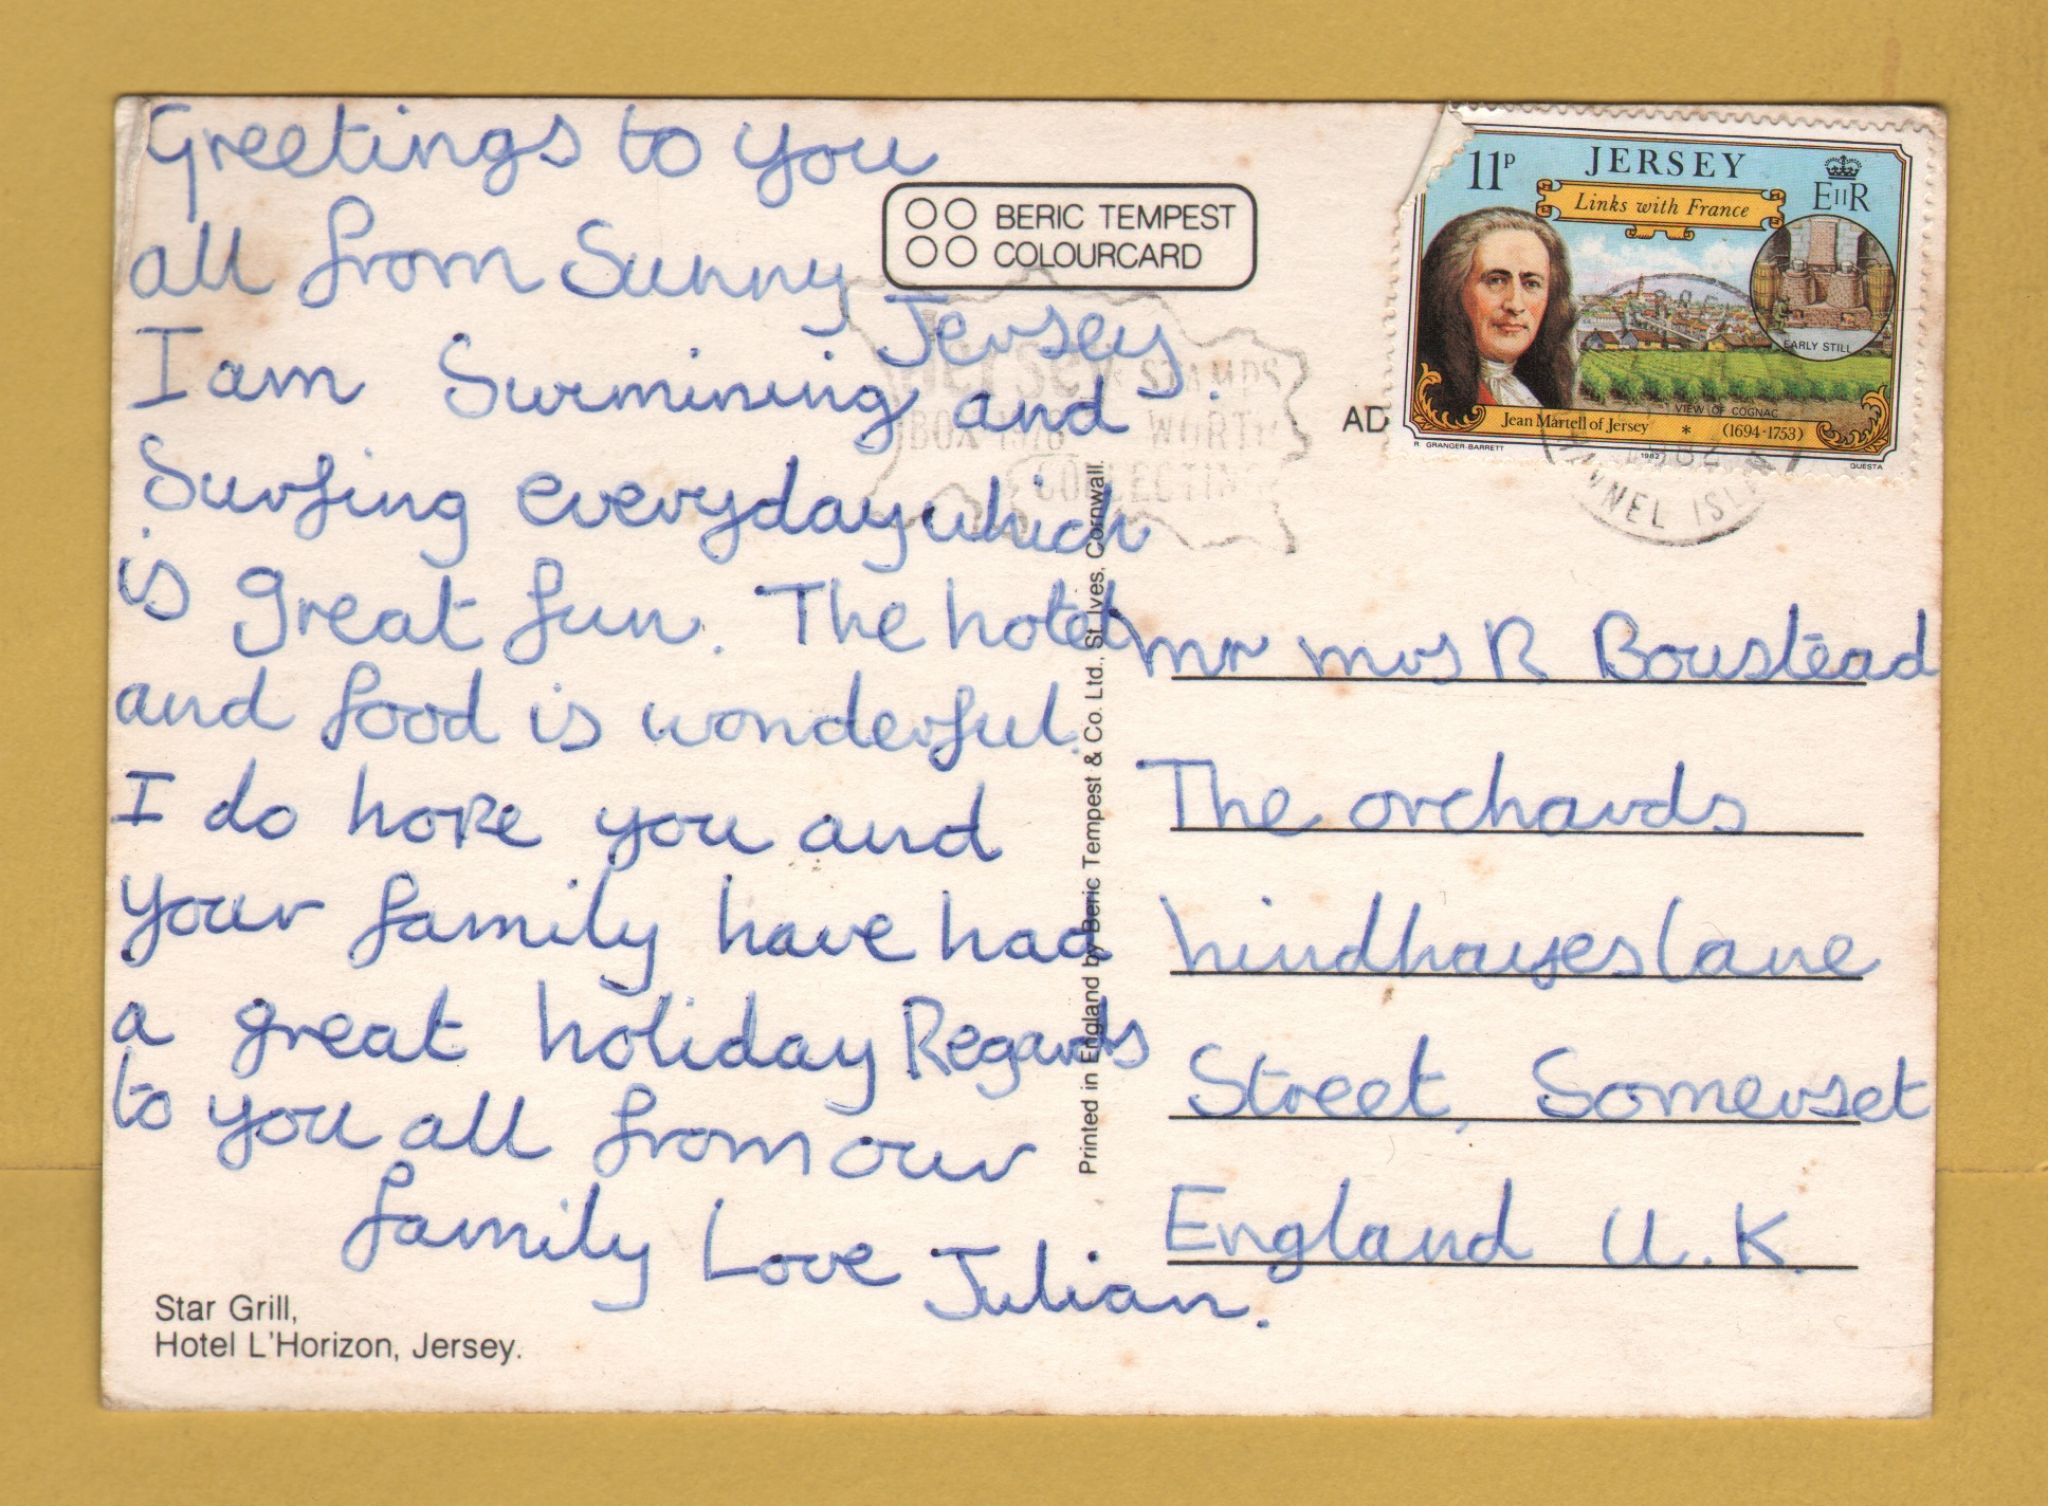 Greetings to you
all from Sunny
Jersey.
I am Surmining and
Surfing everyday which
is great fun. The hotel
and food is wonderful.
I do hope you and
your family have had
a great holiday Regards
to you all from our
family Love Julian.
Star Grill,
Hotel L'Horizon, Jersey.
BERIC TEMPEST
COLOURCARD
Jersey STAMPS
BOX 1978 WORTH
COLLECTING
Printed in England by Beric Tempest & Co. Ltd., St. Ives, Cornwall.
AD
11P JERSEY
EIIR
Links with France
EARLY STILL
VIEW OF COGNAC
Jean Martell of Jersey * (1694-1753)
R. GRANGER-BARRETT 1982 QUESTA
mr mrs R Boustead
The orchards
hindhayes lane
Street, Somerset
England U.K.